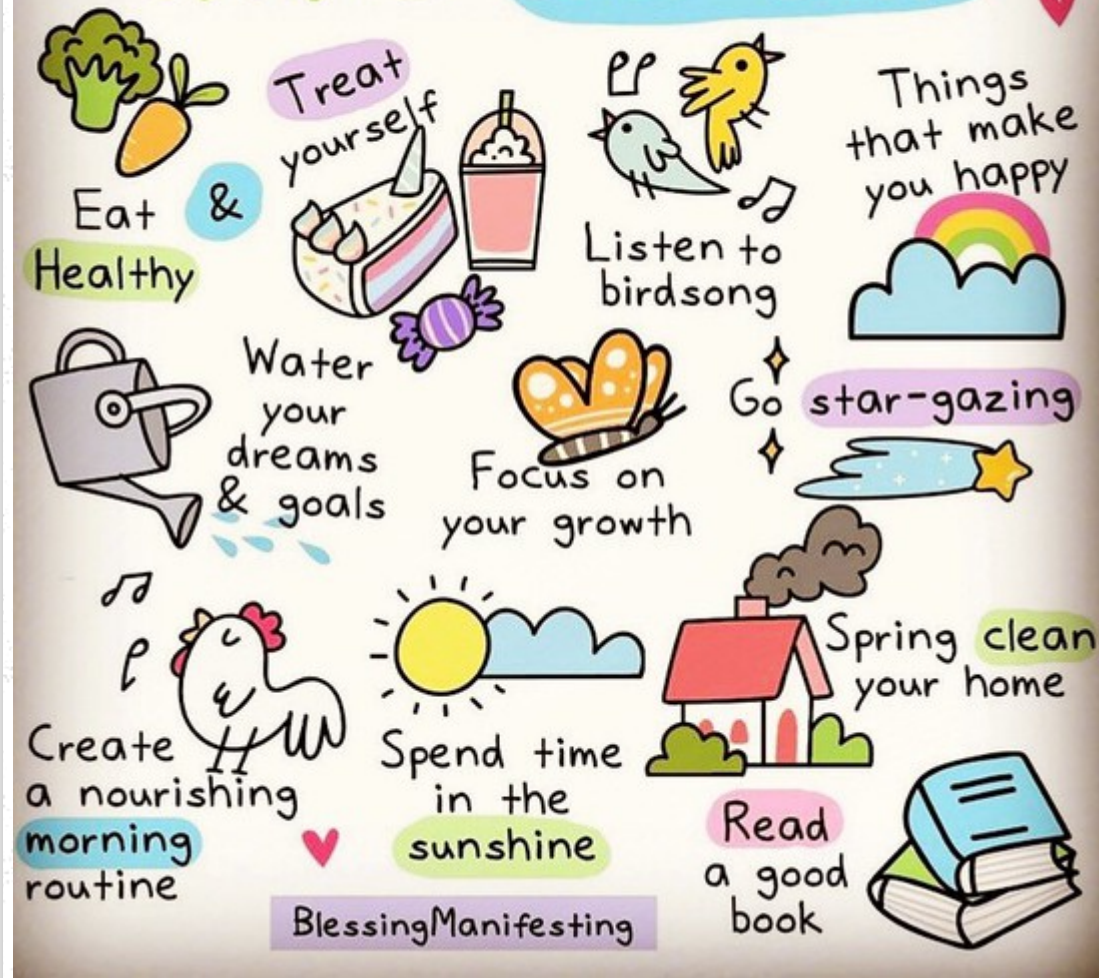 Eat &
Healthy
Treat
yourself
Listen to
birdsong
Things
that make
you happy
Water
your
dreams
& goals
Focus on
your growth
Go star-gazing
Create
a nourishing
morning
routine
Spend time
in the
sunshine
Spring clean
your home
Read
a good
book
BlessingManifesting